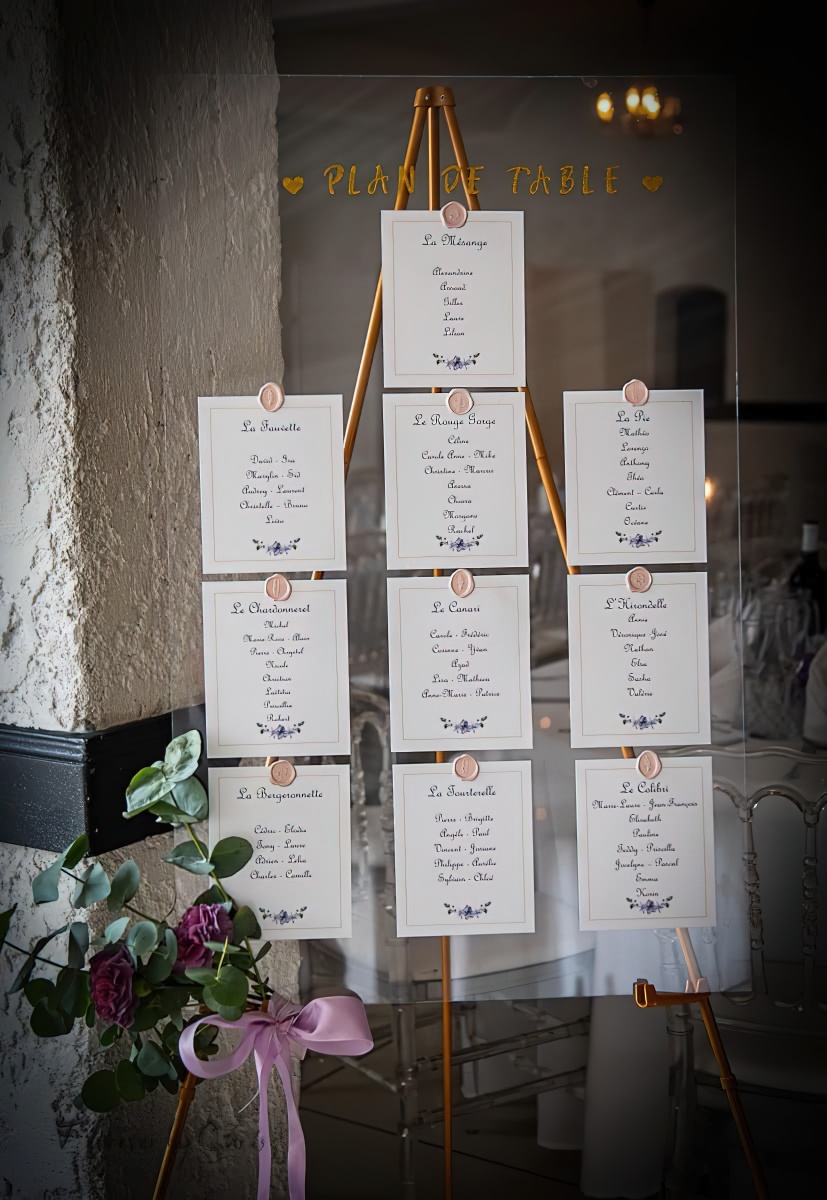 PLAN DE TABLE
La Mésange
Alexandrine
Arnaud
Gilles
Laurie
Lilian
La Fauvette
David - Isa
Marylin - Sid
Audrey - Laurent
Christelle - Bruno
Loïse
Le Rouge Gorge
Céline
Carole Anne - Mike
Christine - Marcus
Chiara
Morgane
Rachel
La Pie
Mathéo
Lorenzo
Anthony
Théa
Clément - Carla
Curtis
Océane
Le Chardonneret
Michel
Marie-Rose - Alain
Pierre - Chrystel
Nicole
Christian
Laëtitia
Priscillia
Robert
Le Canari
Carole - Frédéric
Corinne - Yvan
Azad
Lisa - Mathieu
Anne-Marie - Patrice
L'Hirondelle
Annie
Véronique - José
Nathan
Elsa
Sasha
Valérie
La Bergeronnette
Cédric - Elodie
Tony - Laure
Adrien - Leha
Charles - Camille
La Tourterelle
Pierre - Brigitte
Angèle - Paul
Vincent - Juriane
Philippe - Aurélie
Sylvain - Chloé
Le Colibri
Marie-Laure - Jean-François
Elisabeth
Pauline
Teddy - Priscilla
Jocelyne - Pascal
Emma